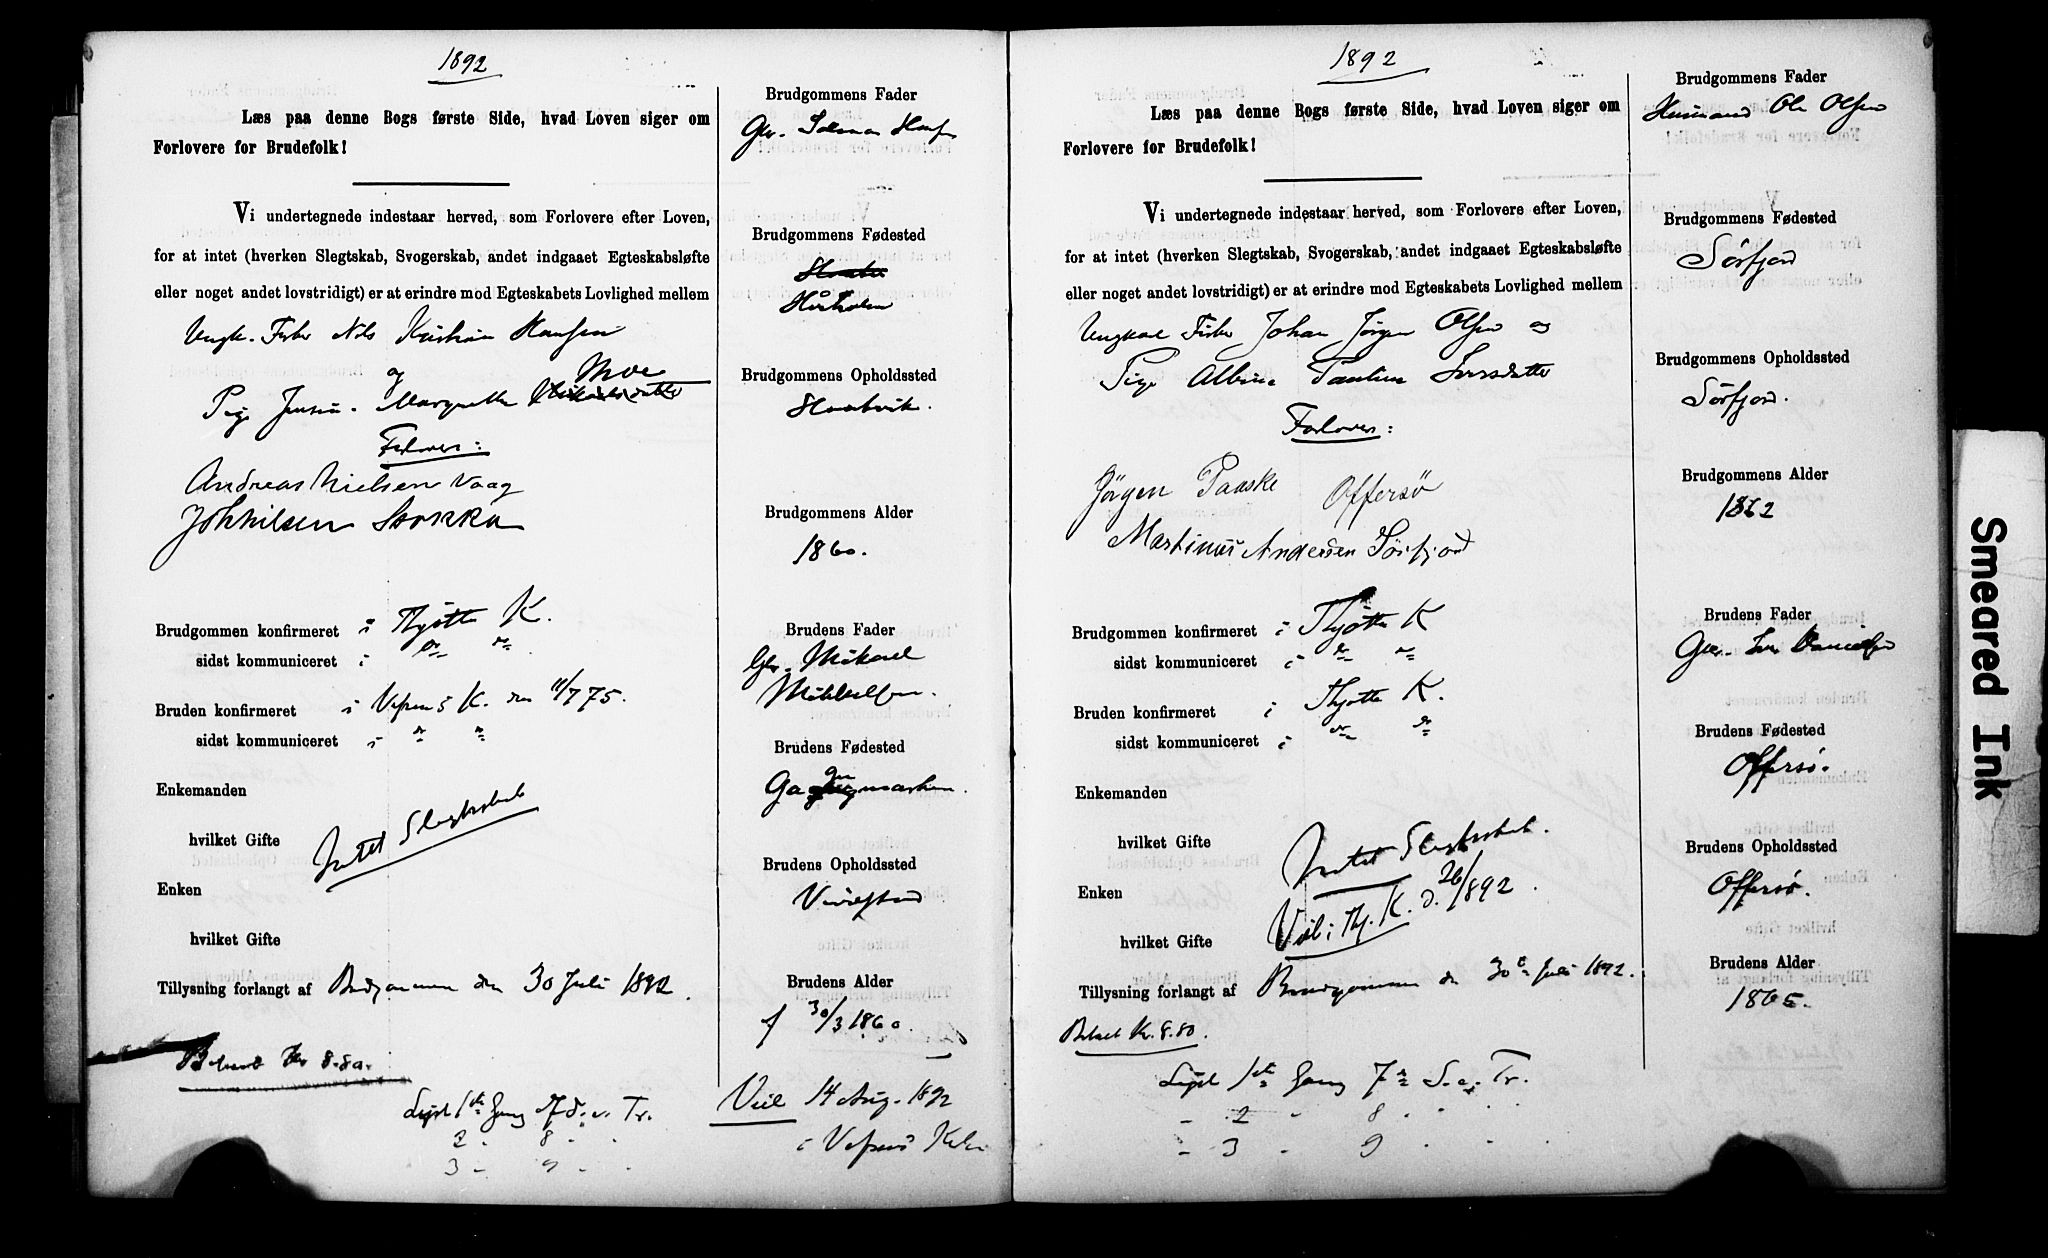 1892
Læs paa denne Bogs første Side, hvad Loven siger om
Forlovere for Brudefolk!
Vi undertegnede indestaar herved, som Forlovere efter Loven,
for at intet (hverken Slegtskab, Svogerskab, andet indgaaet Egteskabsløfte
eller noget andet lovstridigt) er at erindre mod Egteskabets Lovlighed mellem
Ungk. Fisker Nils Kristian Hansen
og Moe
Pige Jensine Margrethe
Forlovere:
Andreas Nielsen Vaag
Joh Nilsen Stokka
Brudgommen konfirmeret i Thjøttø K.
sidst kommuniceret i do do
Bruden konfirmeret i Vefsens K. den 11/7 75.
sidst kommuniceret i do do
Enkemanden
hvilket Gifte
Intet Slegtskab
Enken
hvilket Gifte
Tillysning forlangt af Brudgommen den 30 Juli 1892.
Betalt Kr 8.80.
Lyst 1ste Gang 7 S. e. Tr.
2 " 8 " "
3 " 9 " "
Brudgommens Fader
Brudgommens Fødested
Brudgommens Opholdssted
Brudgommens Alder
1860.
Brudens Fader
Gbr. Mikael
Mikkelsen.
Brudens Fødested
Brudens Opholdssted
Brudens Alder
f 30/3 1860.
Viel 14 Aug. 1892
i Vefsens Kirke
1892
Læs paa denne Bogs første Side, hvad Loven siger om
Forlovere for Brudefolk!
Vi undertegnede indestaar herved, som Forlovere efter Loven,
for at intet (hverken Slegtskab, Svogerskab, andet indgaaet Egteskabsløfte
eller noget andet lovstridigt) er at erindre mod Egteskabets Lovlighed mellem
Ungkarl Fisker Johan Jørgen Olsen og
Pige Albine Pauline Iversdatter
Forlovere:
Jörgen Paaske Offersö
Martinus Andersen Sörfjord
Brudgommen konfirmeret i Thjøttø K
sidst kommuniceret i do do
Bruden konfirmeret i Thjøttø K.
sidst kommuniceret i do do
Enkemanden
hvilket Gifte
Intet Slegtskab.
Enken
Viel i Thj. K. d. 26/ 892.
hvilket Gifte
Tillysning forlangt af Brudgommen den 30te Juli 1892.
Betalt Kr. 8.80.
Lyst 1ste Gang 7de S. e. Tr.
" 2 " 8 " "
" 3 " 9 " "
Brudgommens Fader
Husmand Ole Olsen
Brudgommens Fødested
Sörfjord
Brudgommens Opholdssted
Sörfjord.
Brudgommens Alder
1862
Brudens Fader
Gbr. Iver Danielsen
Brudens Fødested
Offersö.
Brudens Opholdssted
Offersö.
Brudens Alder
1865.
Smeared Ink